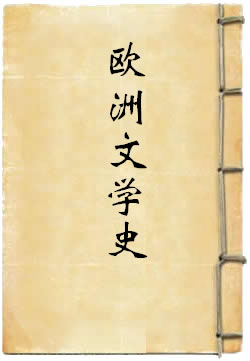 欧洲文学史